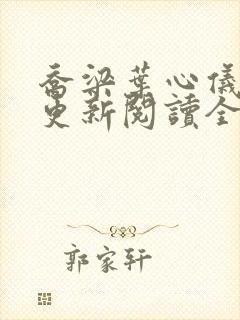 喬梁葉心儀
更新閱讀全
郭家轩